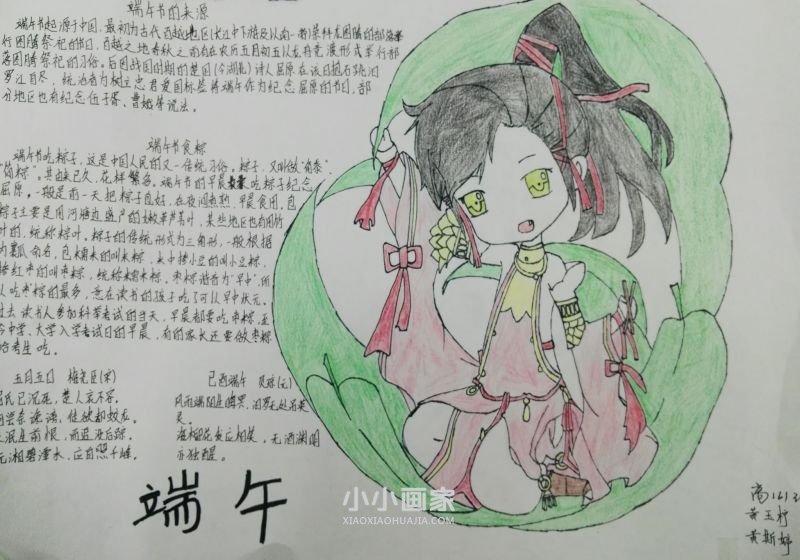 端午节的来源
端午节起源于中国，最初为古代百越地区(长江中下游及以南一带)崇拜龙图腾的部落举
行图腾祭祀的节日，百越之地春秋之前有在农历五月初五以龙舟竞渡形式举行部
落图腾祭祀的习俗。后因战国时期的楚国(今湖北)诗人屈原在该日抱石跳汨
罗江自尽，统治者为树立忠君爱国标签将端午作为纪念屈原的节日，部
分地区也有纪念伍子胥、曹娥等说法。
端午节食粽
端午节吃粽子，这是中国人民的又一传统习俗。粽子，又叫做"角黍"
"筒粽"。其由来已久，花样繁多。端午节的早晨吃粽子纪念
屈原。一般是前一天把粽子包好，在夜间煮熟，早晨食用，包
粽子主要是用河塘边盛产的嫩芦苇叶，某些地区也有用竹
叶的，统称粽叶。粽子的传统形式为三角形，一般根据
内瓤命名，包糯米的叫米粽，米中掺小豆的叫小豆粽，
掺红枣的叫枣粽，统称糯米粽。枣粽谐音为"早中"，所
以吃枣粽的最多，意在读书的孩子吃了可以早中状元。
过去读书人参加科举考试的当天，早晨都要吃枣粽，至
今中学、大学入学考试日的早晨，有的家长还要做枣粽
给考生吃。
五月五日 梅尧臣(宋)
屈氏已沉死，楚人哀不容。
何尝奈谗谤，徒欲却蛟龙。
未泯生前恨，而追没后踪。
沅湘碧潭水，应自照千峰。
己酉端午 贝琼(元)
风雨端阳生晦冥，汨罗无处吊英
灵。
海榴花发应相笑，无酒渊明
亦独醒。
端午
小小画家
XIAOXIAOHUAJIA.COM
黄斯婷